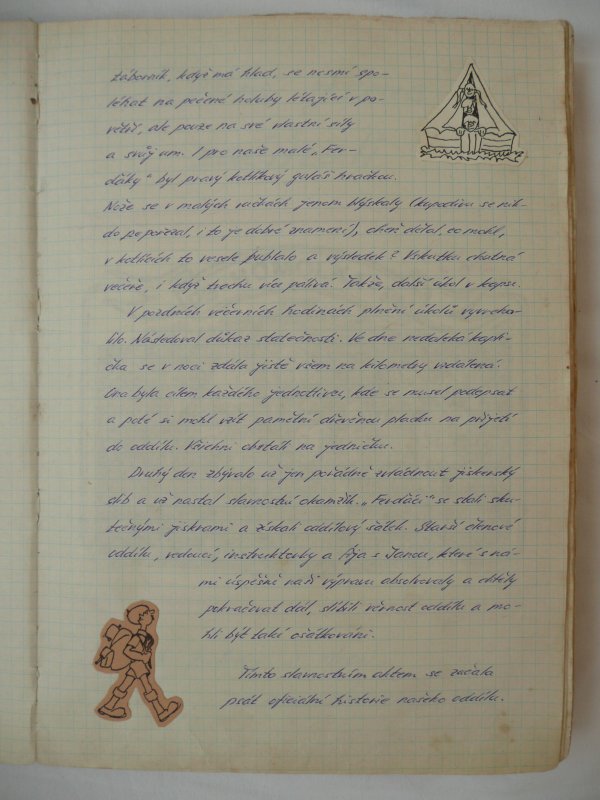 táborník, když má hlad, se nesmí spo-
léhat na pečené holuby létající v po-
větří, ale pouze na své vlastní síly
a svůj um. I pro naše malé „Fer-
ďáky" byl pravý kotlíkový guláš hračkou.
Nože se v malých ručkách jenom blýskaly (kupodivu se nik-
do nepořezal, i to je dobré znamení), oheň dělal, co mohl,
v kotlících to vesele bublalo a výsledek? Vskutku chutná
večeře, i když trochu více pálivá. Takže, další úkol v kapse.
V pozdních večerních hodinách plnění úkolů vyvrcho-
lilo. Následoval důkaz statečnosti. Ve dne nedaleká kapli-
čka se v noci zdála jistě všem na kilometry vzdálená.
Ona byla cílem každého jednotlivce, kde se musel podepsat
a poté si mohl vzít pamětní dřevěnou placku na přijetí
do oddílu. Všichni obstáli na jedničku.
Druhý den zbývalo už jen pořádně zvládnout jiskerský
slib a už nastal slavnostní okamžik. „Ferďáci" se stali sku-
tečnými jiskrami a získali oddílový šátek. Starší členové
oddílu, vedoucí, instruktorky a Ája s Janou, které s ná-
mi úspěšně naši výpravu absolvovaly a chtěly
pokračovat dál, slíbili věrnost oddílu a mo-
hli být také ošátkováni.
Tímto slavnostním aktem se začala
psát oficiální historie našeho oddílu.